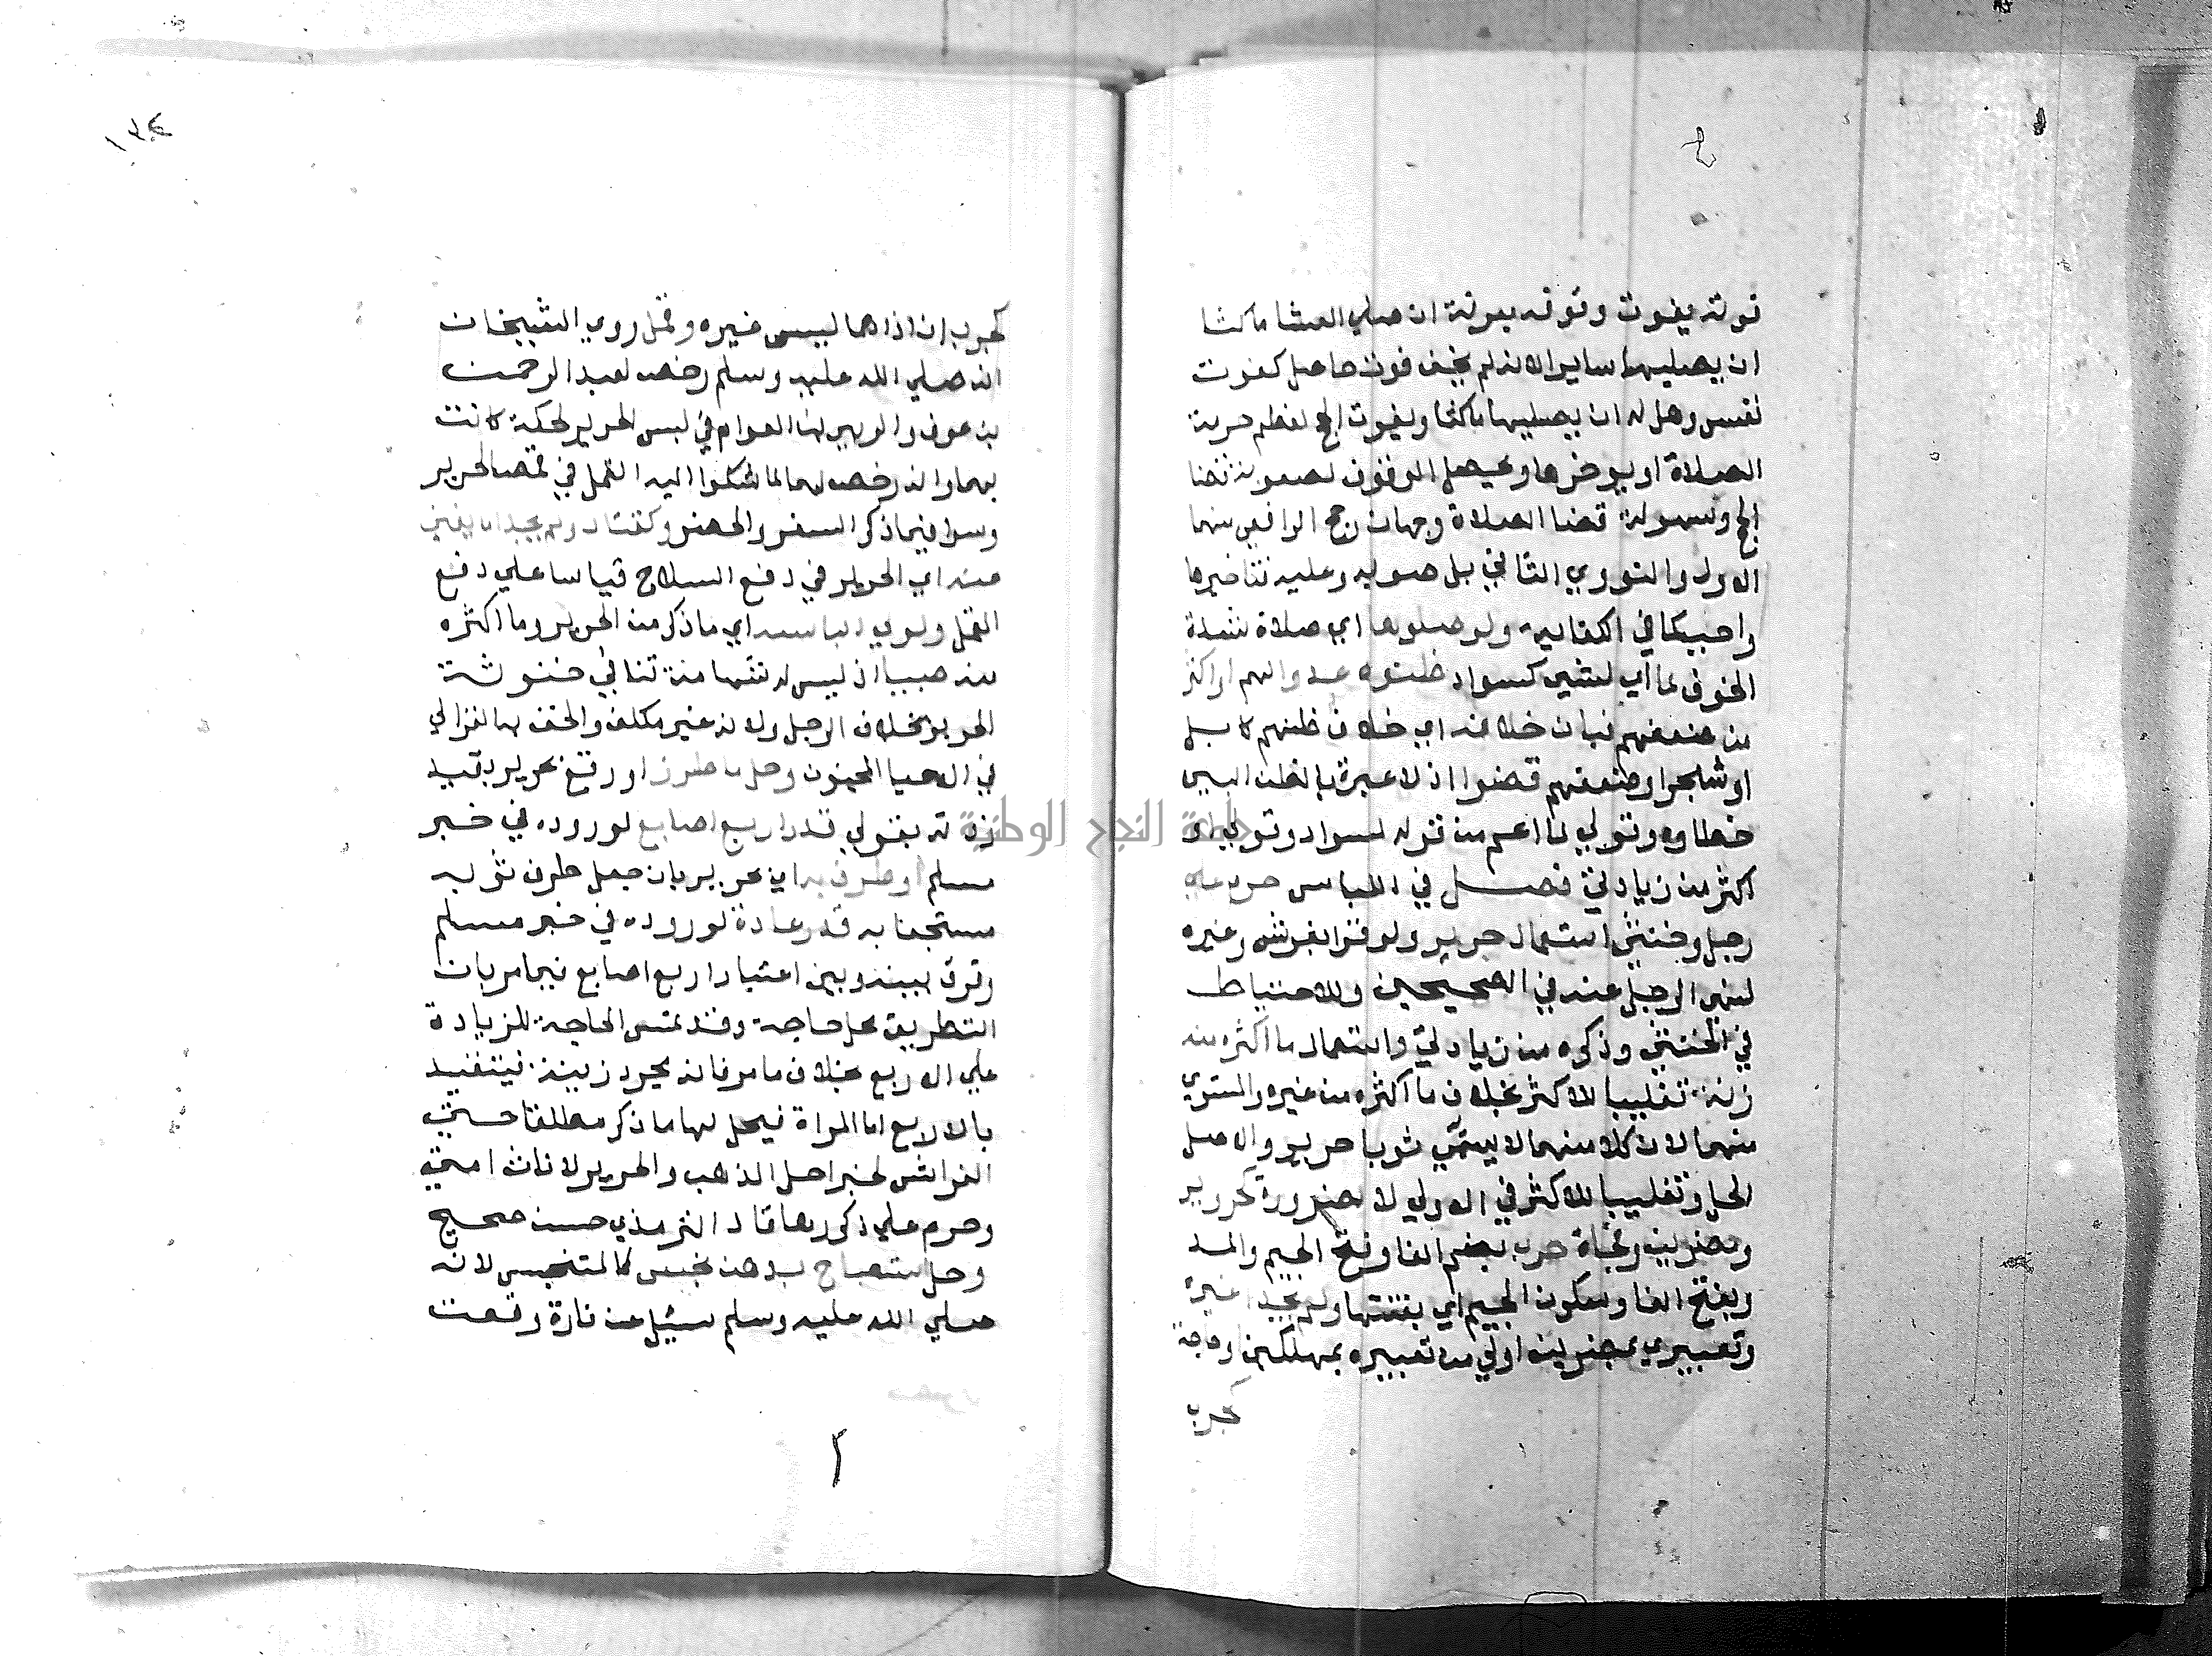 فوته بفوت وقوفه بعرفة ان صلي العشا ماكثا
ان يصليها سايرا لانه لم يخف فوت حاصل كفوت
نفس وهل له ان يصليها ماكثا ويفوت الحج لعظم حرمة
الصلاة او يوخرها ويحصل الوقوف لصعوبة قضا
الحج وسهولة قضا الصلاة وجهان رجح الرافعي منهما
الاول والنووي الثاني بل صوبه وعليه فتاخيرها
واجب كما في الكفاية ولو صلوها اي صلاة شدة
الخوف لما اي لشي كسواد ظنوه عدوا لهم او اكثر
من ضعفهم فبان خلافه اي خلاف ظنهم كابل
او شجر او ضعفهم قضوا اذ لا عبرة بالظن البين
خطاوه وقولي لما اعم من قوله لسواد وقولي او
اكثر من زيادتي فصل في اللباس حرم علي
رجل وخنثي استعمال حرير ولو قزا بفرش وغيره
لنهي الرجل عنه في الصحيحين وللاحتياط
في الخنثي وذكره من زيادتي واستعمال ما اكثره منه
زنة تغليبا للاكثر بخلاف ما اكثره من غيره والمستوي
منهما لان كلا منهما لا يسمي ثوب حرير والاصل
الحل وتغليبا للاكثر في الاولي لا لضرورة كحر وبرد
مضرين وفجاة حرب بضم الفا وفتح الجيم والمد
وبفتح الفا وسكون الجيم اي بغتتها ولم يجد غيره
وتعبيري بمضرين اولي من تعبيره بمهلكين وحاجة
كجرب
١٣٤
كجرب ان اذاهما لبس غيره وقمل روي الشيخان
انه صلي الله عليه وسلم رخص لعبد الرحمن
بن عوف والزبير بن العوام في لبس الحرير لحكة كانت
بهما وانه رخص لهما لما شكوا اليه القمل في قمص الحرير
وسوا فيما ذكر السفر والحضر وكقتال ولم يجد ما يغني
عنه اي الحرير في دفع السلاح قياسا علي دفع
القمل ولولي الباسه اي ما ذكر من الحرير وما اكثره
منه صبيا اذ ليس له شهامة تنافي خنوثة
الحرير بخلاف الرجل ولانه غير مكلف والحق به الغزالي
في الاحيا المجنون وحل ما طرز او رقع بحرير بقيد
زدته بقولي قدر اربع اصابع لوروده في خبر
مسلم او طرف به اي بحرير بان جعل طرف ثوبه
مسجفا به قدر عادة لوروده في خبر مسلم
وفرق بينه وبين اعتبار اربع اصابع فيما مر بان
التطريف محل حاجة وقد تمس الحاجة للزيادة
علي الاربع بخلاف ما مر فانه مجرد زينة فيتقيد
بالاربع اما المراة فيحل لها ما ذكر مطلقا حتي
الفراش لخبر احل الذهب والحرير لاناث امتي
وحرم علي ذكورها قال الترمذي حسن صحيح
وحل استصباح بدهن نجس كالمتنجس لانه
صلي الله عليه وسلم سئل عن فارة وقعت
جامعة النجاح الوطنية